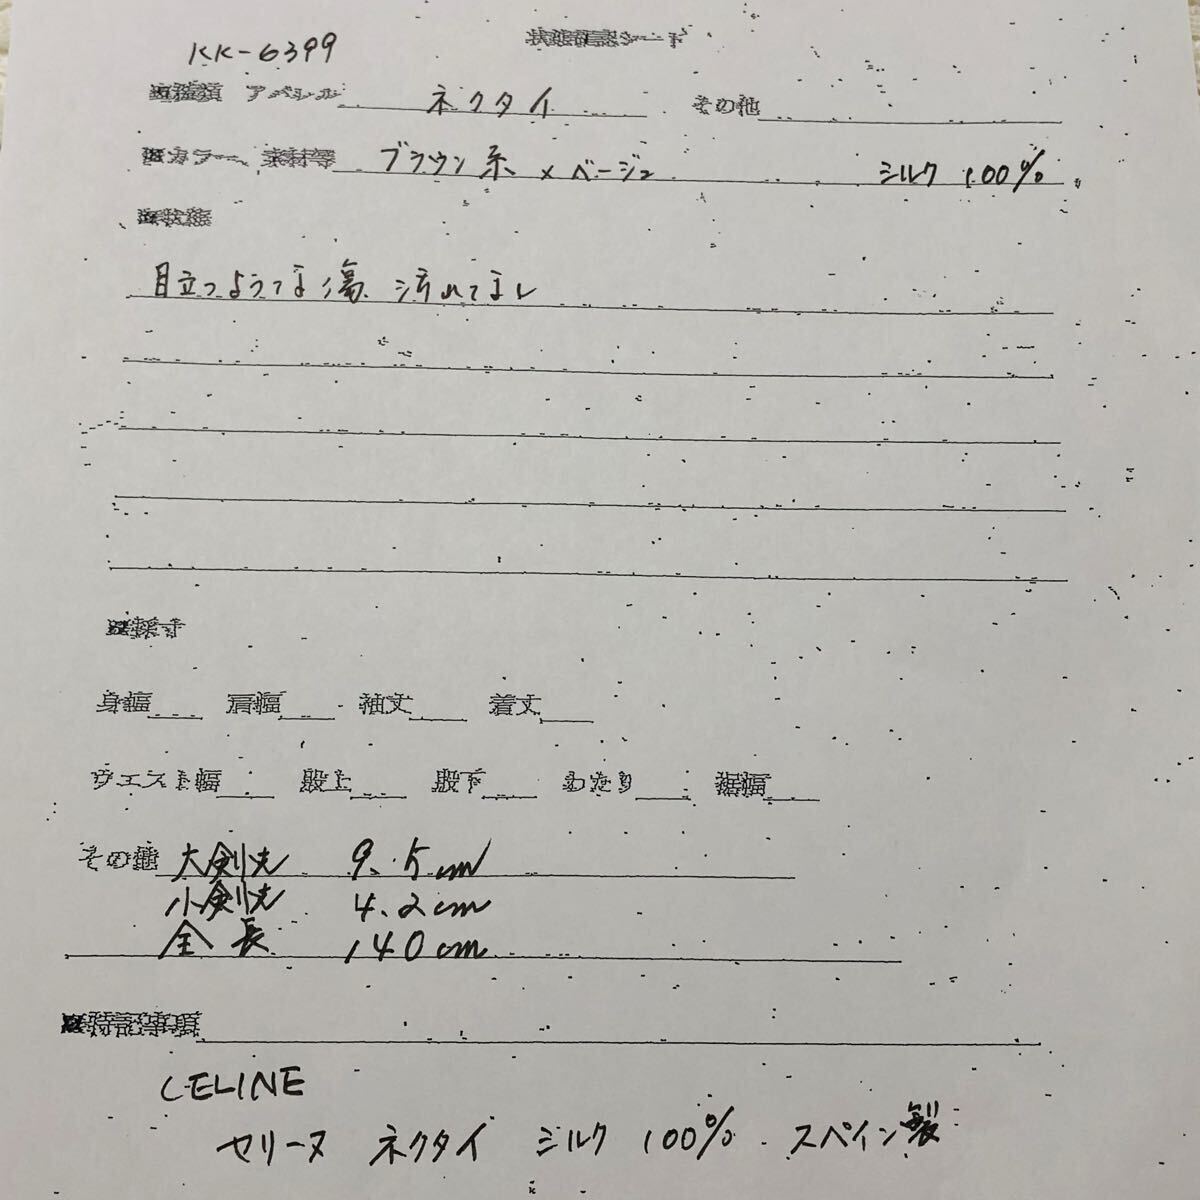 KK-6399
状態確認シート
■種類 アパレル ネクタイ その他
■カラー、素材等 ブラウン系 × ベージュ シルク 100%
■状態
目立つような傷、汚れなし
■採寸
身幅 肩幅 袖丈 着丈
ウエスト幅 股上 股下 わたり 裾幅
その他 大剣先 9.5cm
小剣先 4.2cm
全長 140cm
■特記事項
CELINE
セリーヌ ネクタイ シルク 100% スペイン製